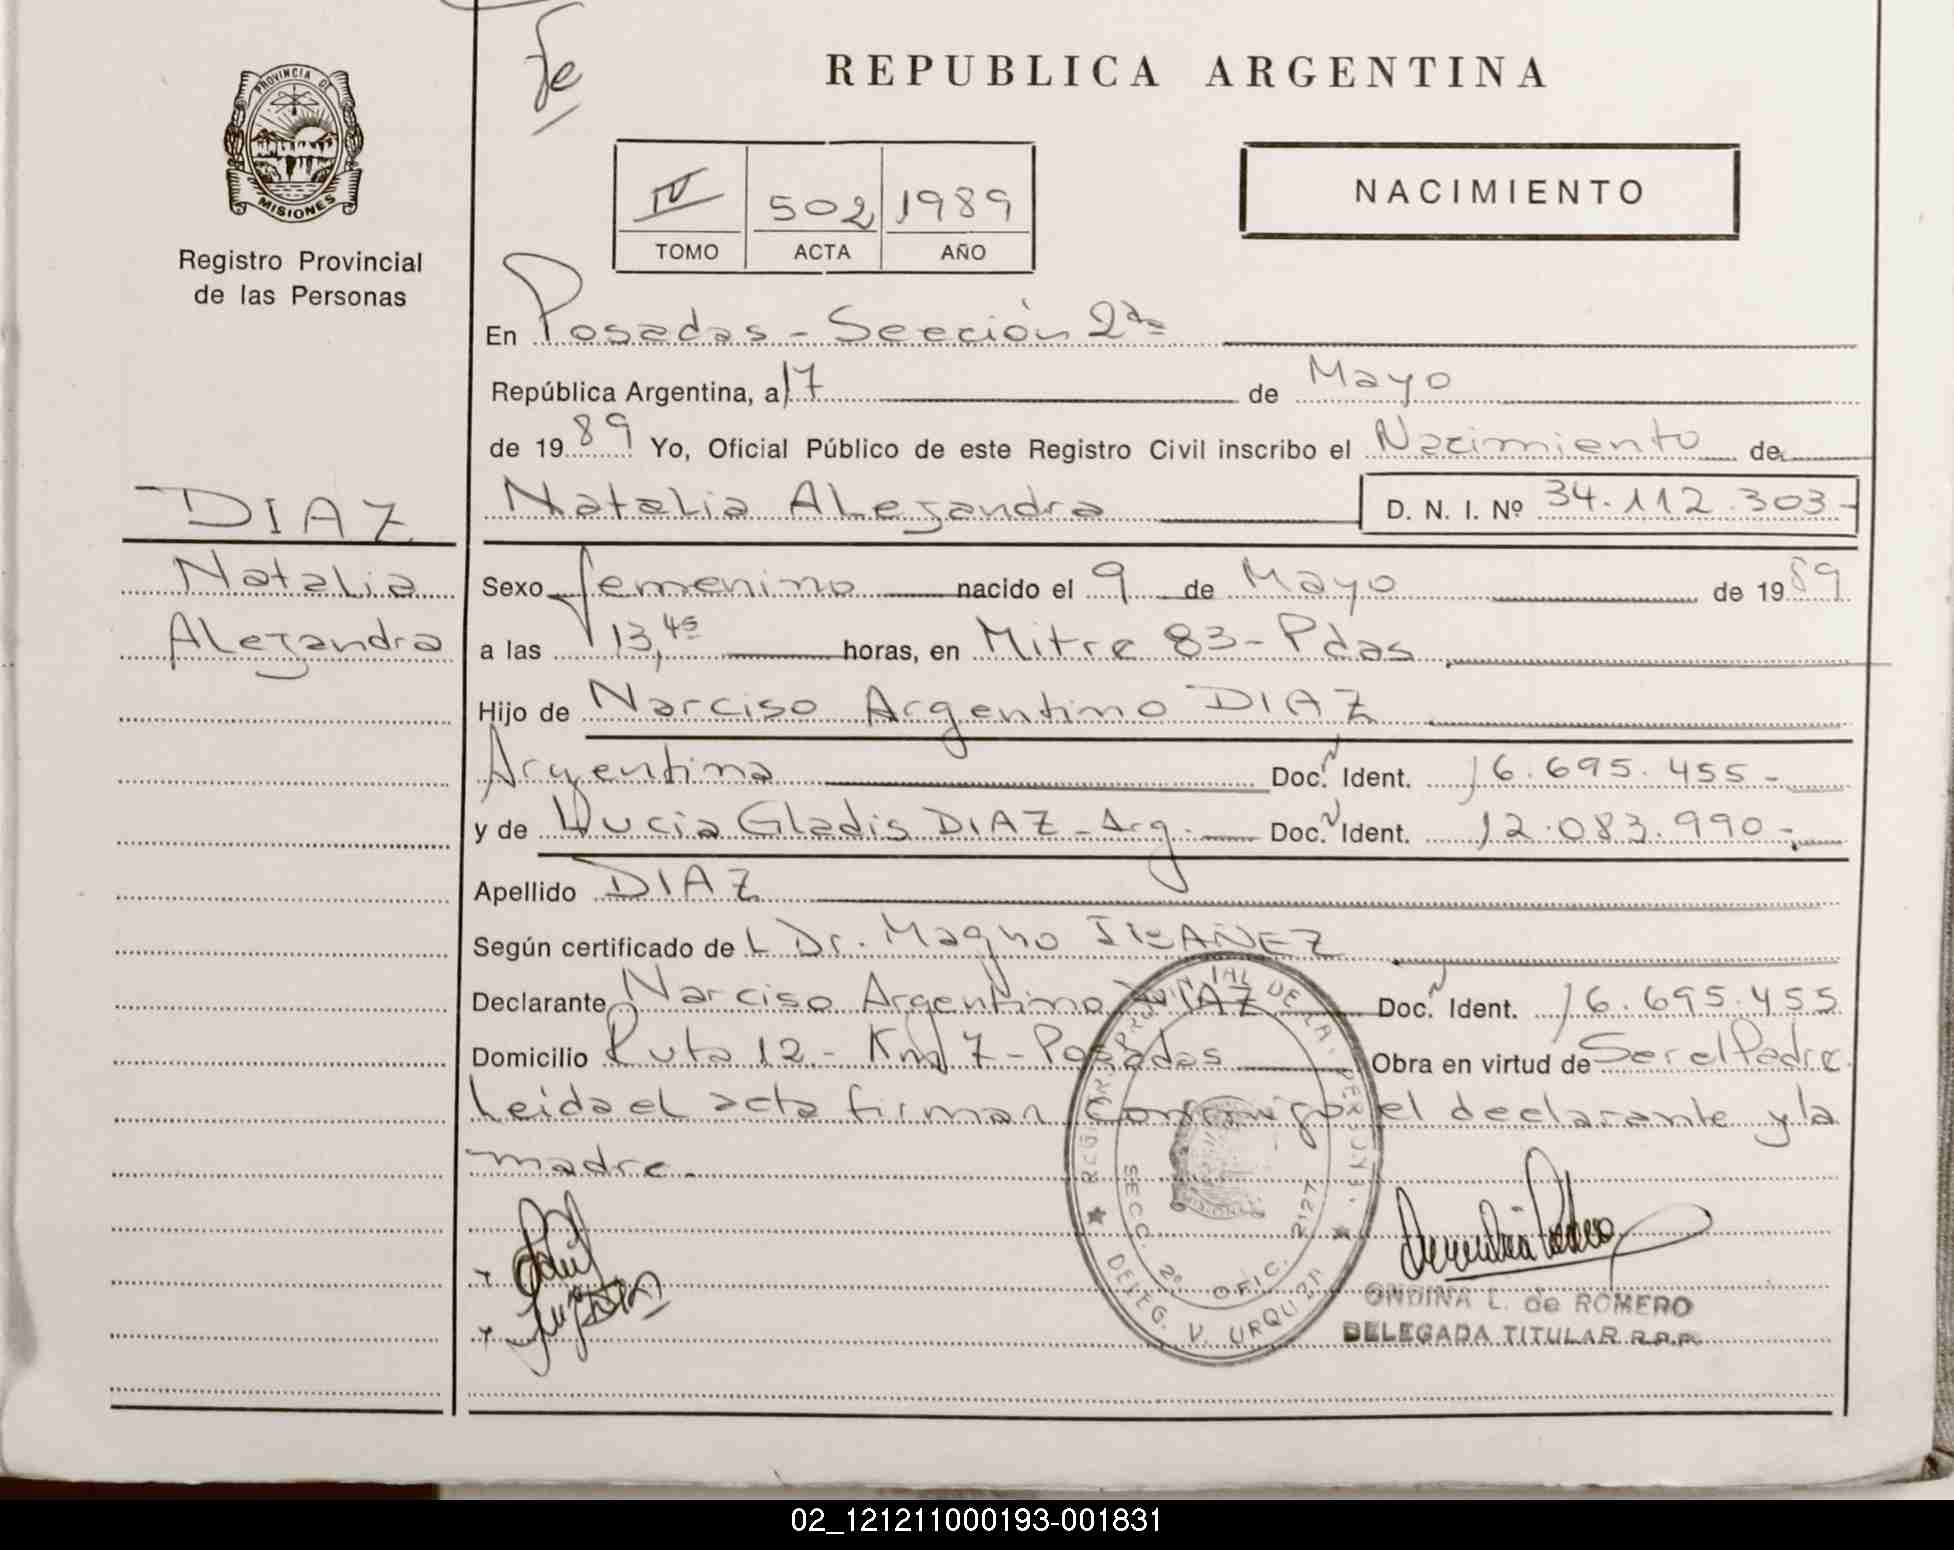 Fe
REPUBLICA ARGENTINA
PROVINCIA DE
MISIONES
Registro Provincial
de las Personas
IV 502 1989
TOMO ACTA AÑO
NACIMIENTO
En Posadas - Sección 2da
República Argentina, a 17 de Mayo
de 1989 Yo, Oficial Público de este Registro Civil inscribo el Nacimiento de
DIAZ
Natalia
Alejandra
Natalia Alejandra D. N. I. Nº 34.112.303-
Sexo femenino nacido el 9 de Mayo de 1989
a las 13,45 horas, en Mitre 83 - Pdas
Hijo de Narciso Argentino DIAZ
Argentina Doc. Ident. 16.695.455-
y de Lucia Gladis DIAZ - Arg. Doc. Ident. 12.083.990-
Apellido DIAZ
Según certificado de L Dr. Magno IBAÑEZ
Declarante Narciso Argentino DIAZ Doc. Ident. 16.695.455
Domicilio Ruta 12 - Km 7 - Posadas Obra en virtud de Ser el Padre
Leida el acta firman conmigo el declarante y la
madre.
REGISTRO PROVINCIAL DE LAS PERSONAS
SECC. 2º OFIC. 2127
DELEG. V. URQUIZA
ONDINA L. de ROMERO
DELEGADA TITULAR R.P.P.
02_121211000193-001831